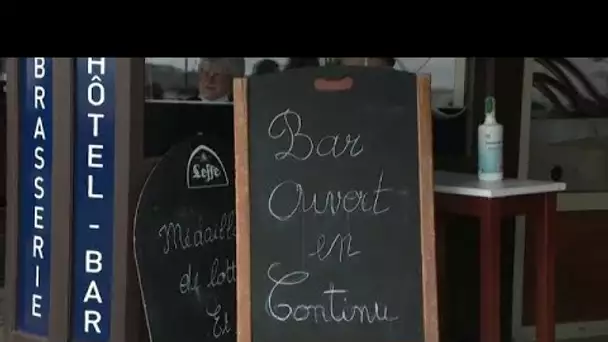 BRASSERIE
HÔTEL - BAR
Leffe
Médaill
de lott
Et
Bar
Ouvert
en
Continu